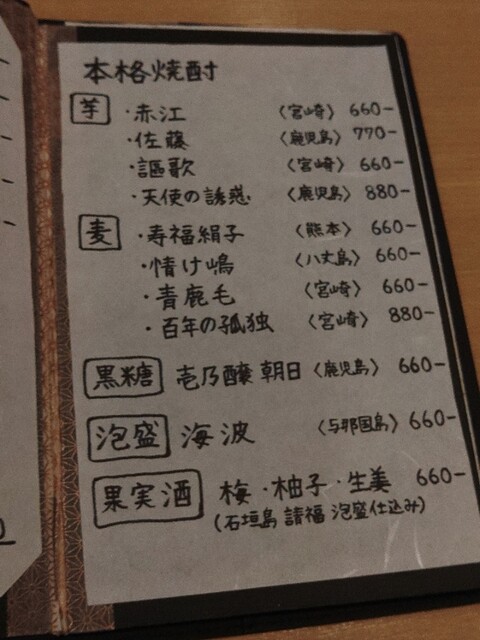 本格焼酎
芋 ・赤江 〈宮崎〉 660-
・佐藤 〈鹿児島〉 770-
・謳歌 〈宮崎〉 660-
・天使の誘惑 〈鹿児島〉 880-
麦 ・寿福絹子 〈熊本〉 660-
・情け嶋 〈八丈島〉 660-
・青鹿毛 〈宮崎〉 660-
・百年の孤独 〈宮崎〉 880-
黒糖 壱乃醸 朝日 〈鹿児島〉 660-
泡盛 海波 〈与那国島〉 660-
果実酒 梅・柚子・生姜 660-
(石垣島 請福 泡盛仕込み)